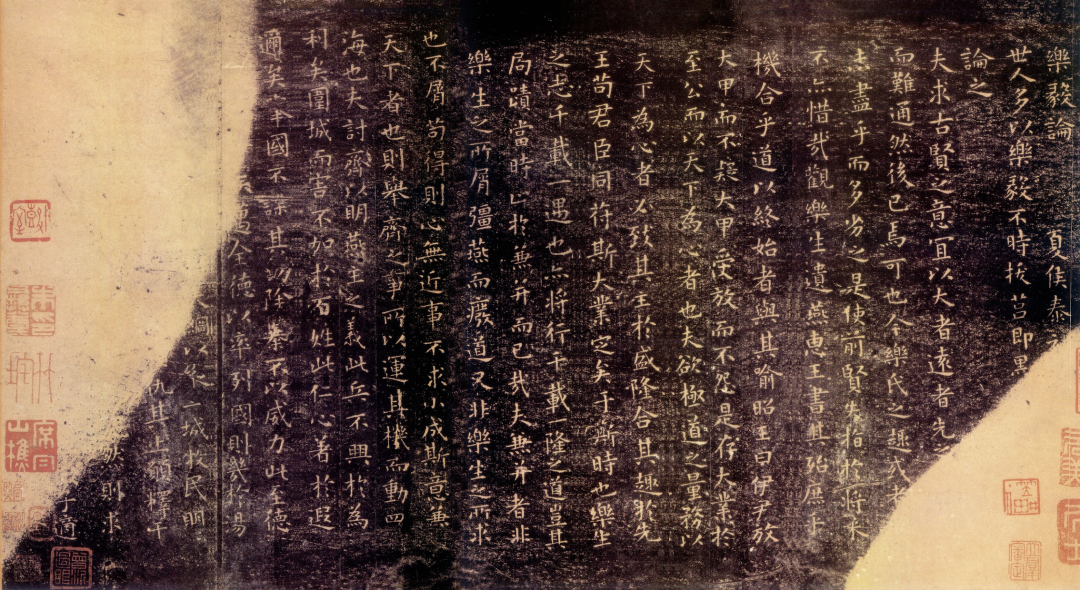 樂毅論　夏侯泰
世人多以樂毅不時拔莒即墨
論之
夫求古賢之意宜以大者遠者先
而難通然後已焉可也今樂氏之趣或者
盡乎而多劣之是使前賢失指於將來
不亦惜哉觀樂生遺燕惠王書其殆庶乎
機合乎道以終始者與其喻昭王曰伊尹放
大甲而不疑大甲受放而不怨是存大業於
至公而以天下為心者也夫欲極道之量務以
天下為心者必致其主於盛隆合其趣於先
王苟君臣同符斯大業定矣于斯時也樂生
之志千載一遇也亦將行千載一隆之道豈其
局蹟當時止於兼并而已哉夫兼并者非
樂生之所屑彊燕而廢道又非樂生之所求
也不屑苟得則心無近事不求小成斯意兼
天下者也則舉齊之事所以運其機而動四
海也夫討齊以明燕主之義此兵不興於為
利矣圍城而害不加於百姓此仁心著於遐
邇矣舉國不謀其功除暴不以威力此至德
邁全德以率列國則幾於湯
以 城牧民明
其上願釋干
則求
于道